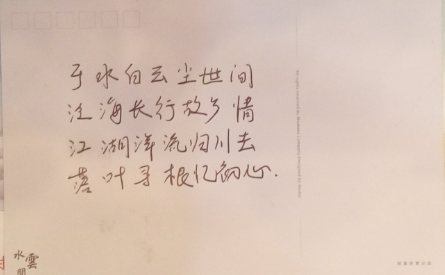 于水白云尘世间
泛海长行故乡情
江湖洋流归川去
落叶寻根忆初心.
水雲間